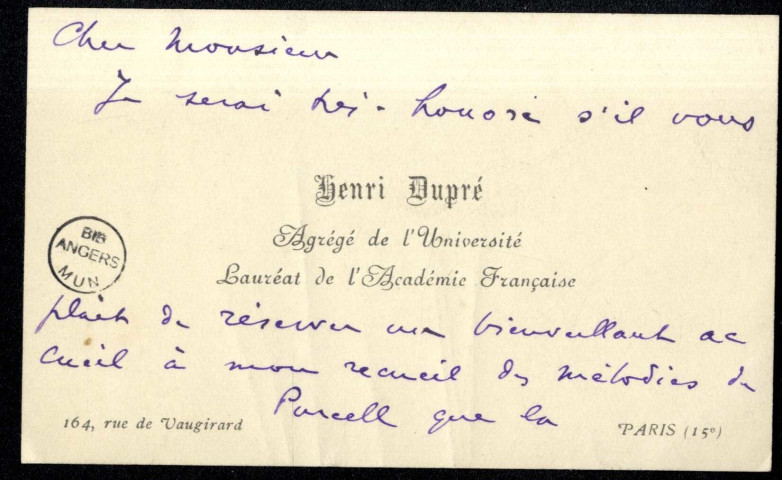 Cher Monsieur
Je serai très-honoré s'il vous
Henri Dupré
Agrégé de l'Université
Lauréat de l'Académie Française
BIB
ANGERS
MUN
plait de réserver un bienveillant ac
cueil à mon recueil des mélodies de
Purcell que la
164, rue de Vaugirard
PARIS (15e)